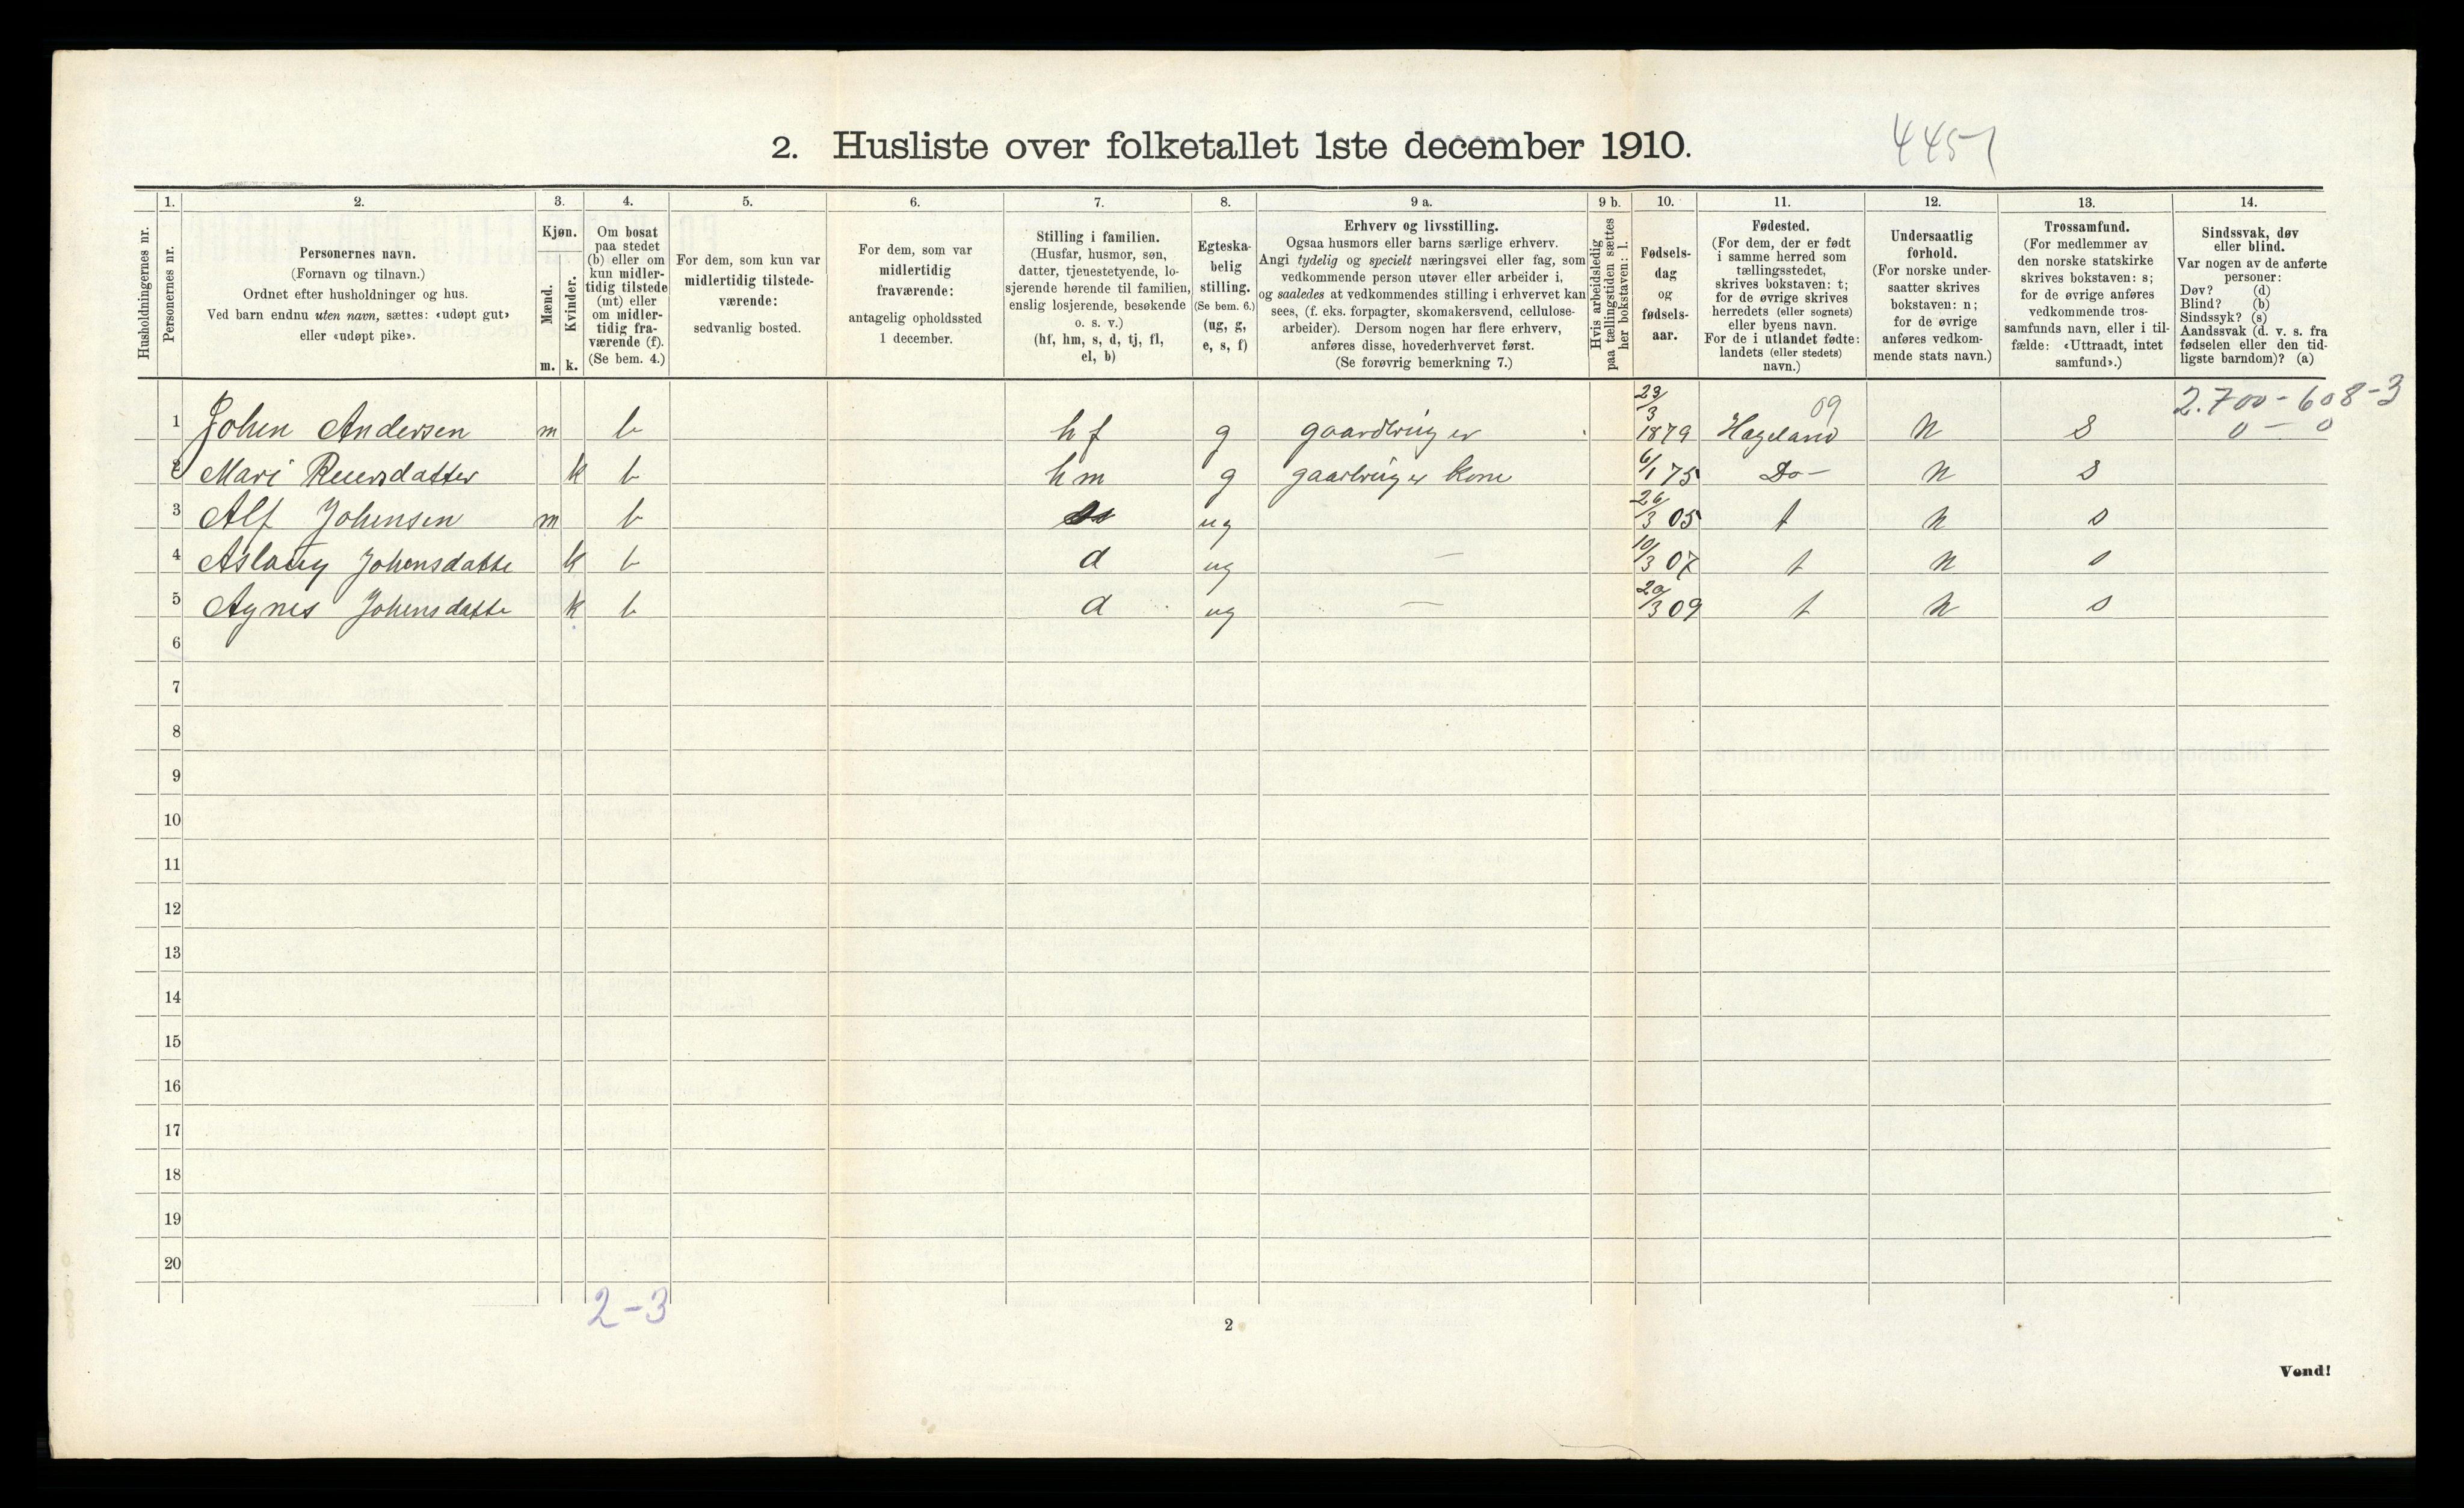 2. Husliste over folketallet 1ste december 1910.
4451
Husholdningernes nr.
1.
Personernes nr.
2.
Personernes navn.
(Fornavn og tilnavn.)
Ordnet efter husholdninger og hus.
Ved barn endnu uten navn, sættes: «udøpt gut»
eller «udøpt pike».
3.
Kjøn.
Mænd.
Kvinder.
m. k.
4.
Om bosat
paa stedet
(b) eller om
kun midler-
tidig tilstede
(mt) eller
om midler-
tidig fra-
værende (f).
(Se bem. 4.)
5.
For dem, som kun var
midlertidig tilstede-
værende:
sedvanlig bosted.
6.
For dem, som var
midlertidig
fraværende:
antagelig opholdssted
1 december.
7.
Stilling i familien.
(Husfar, husmor, søn,
datter, tjenestetyende, lo-
sjerende hørende til familien,
enslig losjerende, besøkende
o. s. v.)
(hf, hm, s, d, tj, fl,
el, b)
8.
Egteska-
belig
stilling.
(Se bem. 6.)
(ug, g,
e, s, f)
9 a.
Erhverv og livsstilling.
Ogsaa husmors eller barns særlige erhverv.
Angi tydelig og specielt næringsvei eller fag, som
vedkommende person utøver eller arbeider i,
og saaledes at vedkommendes stilling i erhvervet kan
sees, (f. eks. forpagter, skomakersvend, cellulose-
arbeider). Dersom nogen har flere erhverv,
anføres disse, hovederhvervet først.
(Se forøvrig bemerkning 7.)
9 b.
Hvis arbeidsledig
paa tællingstiden sættes
her bokstaven: l.
10.
Fødsels-
dag
og
fødsels-
aar.
11.
Fødested.
(For dem, der er født
i samme herred som
tællingsstedet,
skrives bokstaven: t;
for de øvrige skrives
herredets (eller sognets)
eller byens navn.
For de i utlandet fødte:
landets (eller stedets)
navn.)
12.
Undersaatlig
forhold.
(For norske under-
saatter skrives
bokstaven: n;
for de øvrige
anføres vedkom-
mende stats navn.)
13.
Trossamfund.
(For medlemmer av
den norske statskirke
skrives bokstaven: s;
for de øvrige anføres
vedkommende tros-
samfunds navn, eller i til-
fælde: «Uttraadt, intet
samfund».)
14.
Sindssvak, døv
eller blind.
Var nogen av de anførte
personer:
Døv? (d)
Blind? (b)
Sindssyk? (s)
Aandssvak (d. v. s. fra
fødselen eller den tid-
ligste barndom)? (a)
09 2.700-608-3
0 - 0
1 Johen Andersen m b hf g gaardbruger 23/3 1879 Hægeland N S
2 Mari k b hm g gaarbruger kone 6/1 75 Do- N S
3 Alf Johensen m b ug 26/3 05 t N s
4 Aslaug Johensdatte k b d ug — 10/3 07 t N s
5 Agnes Johensdatte k b d ug — 3 09 t N s
6
7
8
9
10
11
12
13
14
15
16
17
18
19
20
2-3
2
Vend!